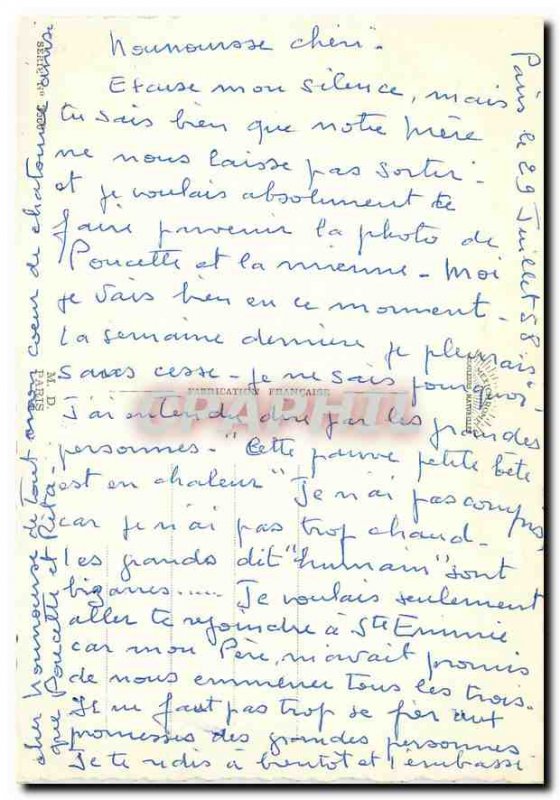 Paris le 29 Juillet 58
Nounousse chéri.
Excuse mon silence, mais
tu sais bien que notre père
ne nous laisse pas sortir.
et je voulais absolument te
faire parvenir la photo de
Poucette et la mienne - Moi
je vais bien en ce moment -
La semaine dernière je pleurais
sans cesse - Je ne sais pourquoi -
J'ai entendu dire par les grandes
personnes - "Cette pauvre petite bête
est en chaleur" Je n'ai pas compris
car je n'ai pas trop chaud -
Les grands dit "humain" sont
bizarres..... Je voulais seulement
aller te rejoindre à Ste Emmie
car mon Père, m'avait promis
de nous emmener tous les trois.
Il ne faut pas trop se fier aux
promesses des grandes personnes
Je te redis à bientôt et t'embrasse
cher Nounousse de tout mon coeur de chatounette
que Poucette et Rita.
FABRICATION FRANÇAISE
M. D.
PARIS
SERIE N°